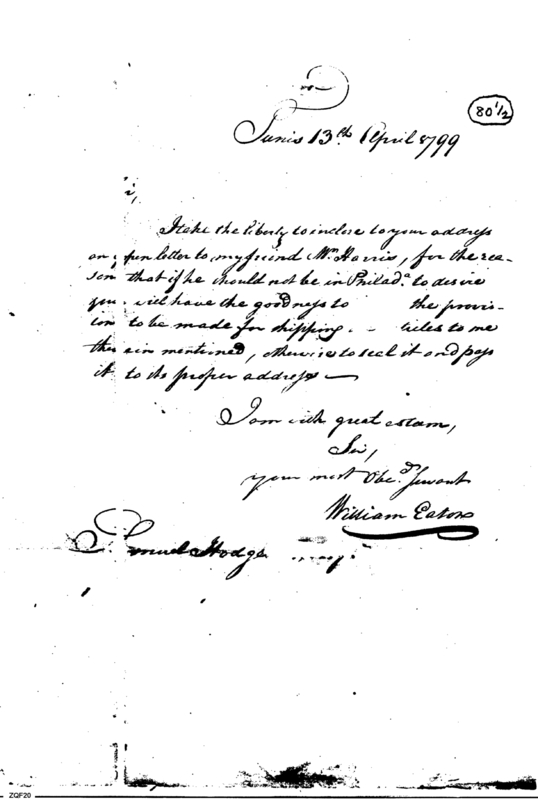 80 1/2
Tunis 13th April 1799
I take the liberty to inclose to your address
an open letter to my friend Mr. Harris, for the rea-
son that if he should not be in Philada. to desire
you will have the goodness to the provis-
ion to be made for shipping to me
therein mentioned, otherwise to seal it and pass
it to its proper address —
I am with great esteam,
Sir,
your most Obed. Servant
William Eaton
Samuel Hodge
ZQF20